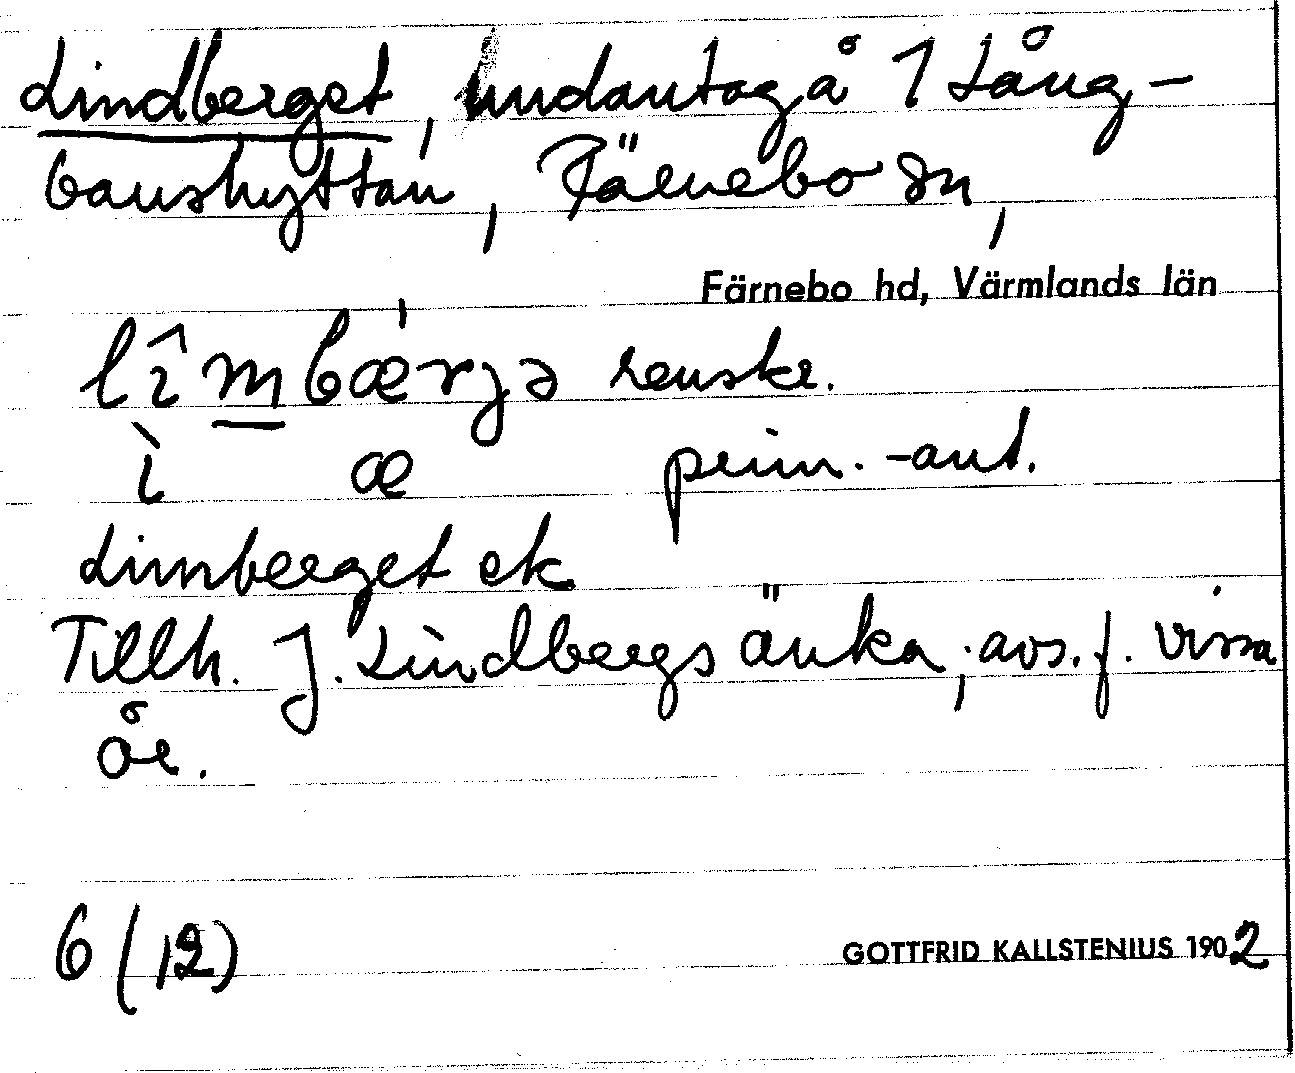 Lindberget, undantag å 1 Lång-
banshyttan, Färnebo sn,
Färnebo hd, Värmlands län
lîmbærjə renskr.
ì æ prim.-ant.
Limberget ek
Tillh. J. Lindbergs änka; avs. f. vissa
år.
6 (12)
GOTTFRID KALLSTENIUS 1902